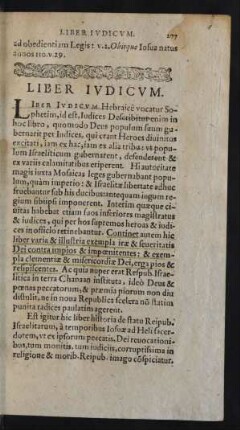 LIBER IVDICVM. 277
ad obedientiam Legis: v.2. Obiitque Iosua natus
annos 110. v. 29.
LIBER IVDICVM.
LIBER IVDICVM Hebraicè vocatur So-
phetim, id est, Iudices Describitur enim in
hoc libro, quomodo Deus populum suum gu-
bernarit per Iudices, qui erant Heroes diuinitus
excitati, iam ex hac, iam ex alia tribu: vt popu-
lum Israëliticum gubernarent, defenderent &
ex variis calamitatibus eriperent. Hi autoritate
magis iuxta Mosaicas leges gubernabant popu-
lum, quàm imperio: & Israëlitæ libertate adhuc
fruebantur sub his ducibus antequam iugum re-
gium sibi ipsi imposcerent. Interim quæque ci-
uitas habebat etiam suos inferiores magistratus
& iudices, qui per hos supremos heroas & iudi-
ces in officio retinebantur. Continet autem hic
liber varia & illustria exempla iræ & seueritatis
Dei contra impios & impœnitentes: & exem-
pla clementiæ & misericordiæ Dei, erga pios &
respiscentes. Ac quia nuper erat Reipub. Israë-
litica in terra Chanaan instituta, ideò Deus &
pœnas peccatorum, & præmia piorum non diu
distulit, ne in noua Republica scelera nō statim
punita radices paulatim agerent.
Est igitur hic liber historia de statu Reipub.
Israëlitarum, à temporibus Iosuæ ad Heli sacer-
dotem, vt ex ipsorum peccatis, Dei reuocationi-
bus, tum monitis, tum iudiciis, corruptissima in
religione & morib. Reipub. imago cōspiciatur.